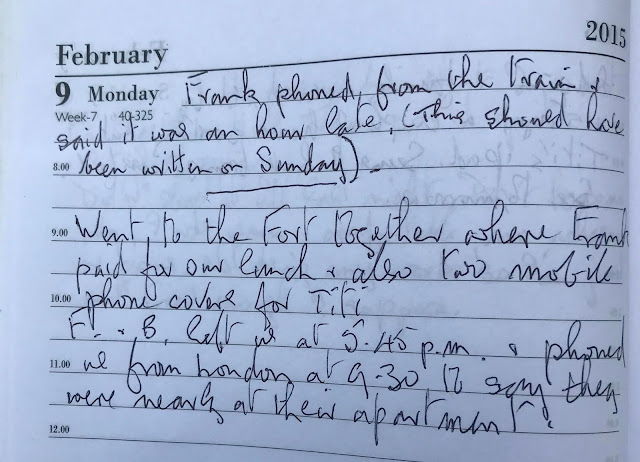 February 2015
9 Monday Frank phoned from the train &
Week-7 40-325
said it was an hour late, (This should have
8.00 been written on Sunday).
9.00 Went to the Fort together where Frank
paid for our lunch & also two mobile
10.00 phone covers for Titi
F. & B. left us at 5.45 p.m. & phoned
11.00 us from London at 9-30 to say they
were nearly at their apartment.
12.00